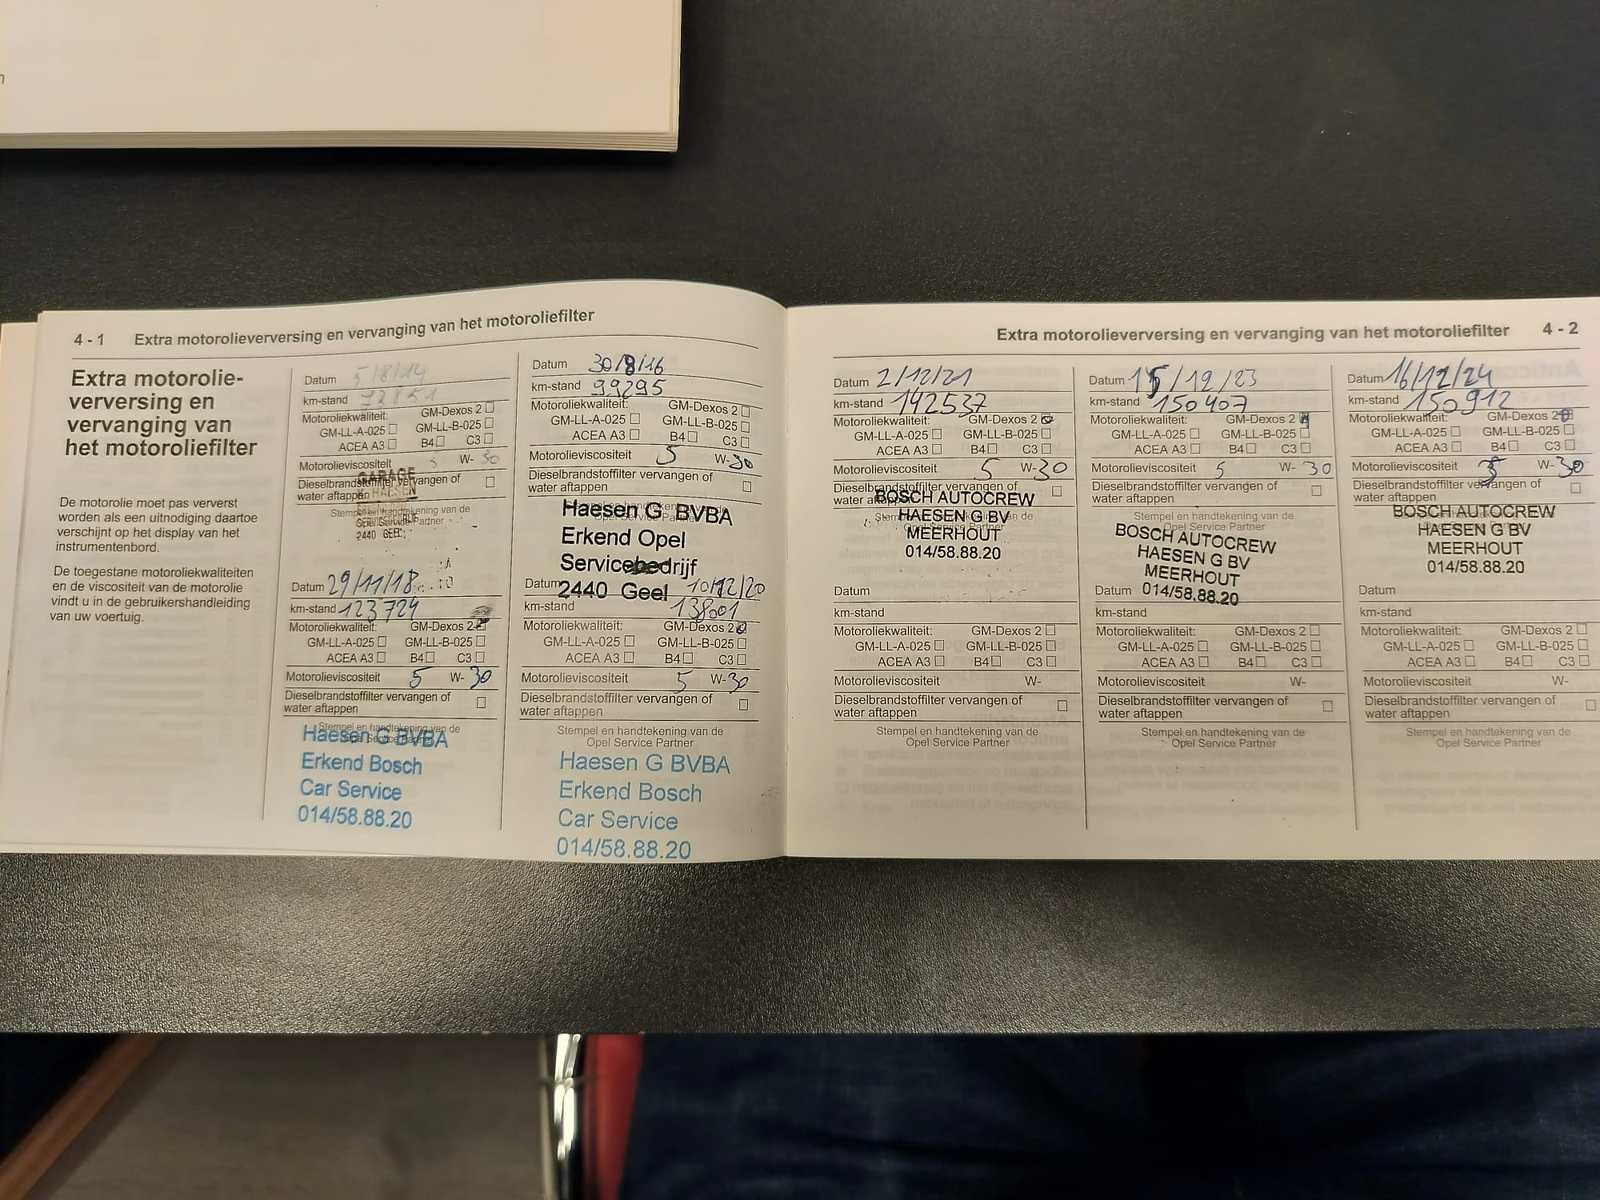 n
4 - 1 Extra motorolieverversing en vervanging van het motoroliefilter
Extra motorolie-
verversing en
vervanging van
het motoroliefilter
De motorolie moet pas ververst
worden als een uitnodiging daartoe
verschijnt op het display van het
instrumentenbord.
De toegestane motoroliekwaliteiten
en de viscositeit van de motorolie
vindt u in de gebruikershandleiding
van uw voertuig.
Datum 5/8/14
km-stand
Motoroliekwaliteit: GM-Dexos 2
GM-LL-A-025 GM-LL-B-025
ACEA A3 B4 C3
Motorolieviscositeit 5 W-30
Dieselbrandstoffilter vervangen of
water aftappen
GARAGE
HAESEN
Stempel en handtekening van de
Opel Service Partner
2440 GEEL
Datum 29/11/18
km-stand 123724
Motoroliekwaliteit: GM-Dexos 2
GM-LL-A-025 GM-LL-B-025
ACEA A3 B4 C3
Motorolieviscositeit 5 W-30
Dieselbrandstoffilter vervangen of
water aftappen
Stempel en handtekening van de
Haesen G BVBA
Erkend Bosch
Car Service
014/58.88.20
Datum 30/8/16
km-stand 99295
Motoroliekwaliteit: GM-Dexos 2
GM-LL-A-025 GM-LL-B-025
ACEA A3 B4 C3
Motorolieviscositeit 5 W-30
Dieselbrandstoffilter vervangen of
water aftappen
Haesen G BVBA
Erkend Opel
Servicebedrijf
2440 Geel
Datum 10/12/20
km-stand 138601
Motoroliekwaliteit: GM-Dexos 2
GM-LL-A-025 GM-LL-B-025
ACEA A3 B4 C3
Motorolieviscositeit 5 W-30
Dieselbrandstoffilter vervangen of
water aftappen
Stempel en handtekening van de
Opel Service Partner
Haesen G BVBA
Erkend Bosch
Car Service
014/58.88.20
Extra motorolieverversing en vervanging van het motoroliefilter 4 - 2
Datum 2/12/21
km-stand 142537
Motoroliekwaliteit: GM-Dexos 2
GM-LL-A-025 GM-LL-B-025
ACEA A3 B4 C3
Motorolieviscositeit 5 W-30
Dieselbrandstoffilter vervangen of
water aftappen
BOSCH AUTOCREW
HAESEN G BV
MEERHOUT
014/58.88.20
Datum
km-stand
Motoroliekwaliteit: GM-Dexos 2
GM-LL-A-025 GM-LL-B-025
ACEA A3 B4 C3
Motorolieviscositeit W-
Dieselbrandstoffilter vervangen of
water aftappen
Stempel en handtekening van de
Opel Service Partner
Datum 15/12/23
km-stand 150407
Motoroliekwaliteit: GM-Dexos 2
GM-LL-A-025 GM-LL-B-025
ACEA A3 B4 C3
Motorolieviscositeit 5 W-30
Dieselbrandstoffilter vervangen of
water aftappen
Stempel en handtekening van de
Opel Service Partner
BOSCH AUTOCREW
HAESEN G BV
MEERHOUT
014/58.88.20
Datum
km-stand
Motoroliekwaliteit: GM-Dexos 2
GM-LL-A-025 GM-LL-B-025
ACEA A3 B4 C3
Motorolieviscositeit W-
Dieselbrandstoffilter vervangen of
water aftappen
Stempel en handtekening van de
Opel Service Partner
Datum 16/12/24
km-stand 150912
Motoroliekwaliteit: GM-Dexos 2
GM-LL-A-025 GM-LL-B-025
ACEA A3 B4 C3
Motorolieviscositeit 5 W-30
Dieselbrandstoffilter vervangen of
water aftappen
BOSCH AUTOCREW
HAESEN G BV
MEERHOUT
014/58.88.20
Datum
km-stand
Motoroliekwaliteit: GM-Dexos 2
GM-LL-A-025 GM-LL-B-025
ACEA A3 B4 C3
Motorolieviscositeit W-
Dieselbrandstoffilter vervangen of
water aftappen
Stempel en handtekening van de
Opel Service Partner